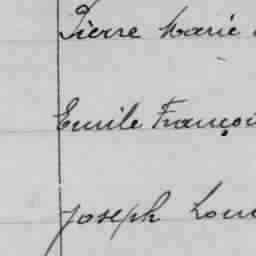 Pierre Marie
Emile Françoi
Joseph Loui